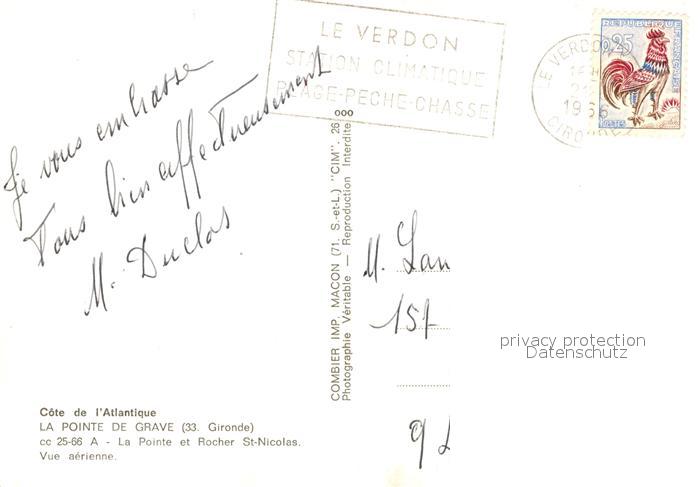 LE VERDON
STATION CLIMATIQUE
PLAGE-PECHE-CHASSE
LE VERDON
1966
GIRONDE
REPUBLIQUE FRANCAISE
0,25
POSTES
Je vous embrasse
Tous bien affectueusement
M. Duclos
ooo
COMBIER IMP. MACON (71. S.-et-L.) "CIM". 26
Photographie Véritable — Reproduction Interdite
M. Lan
157
9
privacy protection
Datenschutz
Côte de l'Atlantique
LA POINTE DE GRAVE (33. Gironde)
cc 25-66 A - La Pointe et Rocher St-Nicolas.
Vue aérienne.